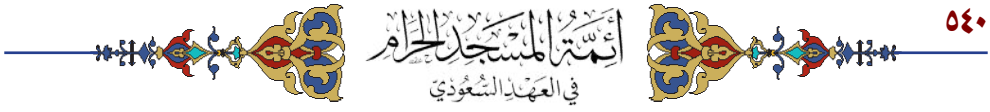 ٥٤٠
أئمة المسجد الحرام
في العهد السعودي